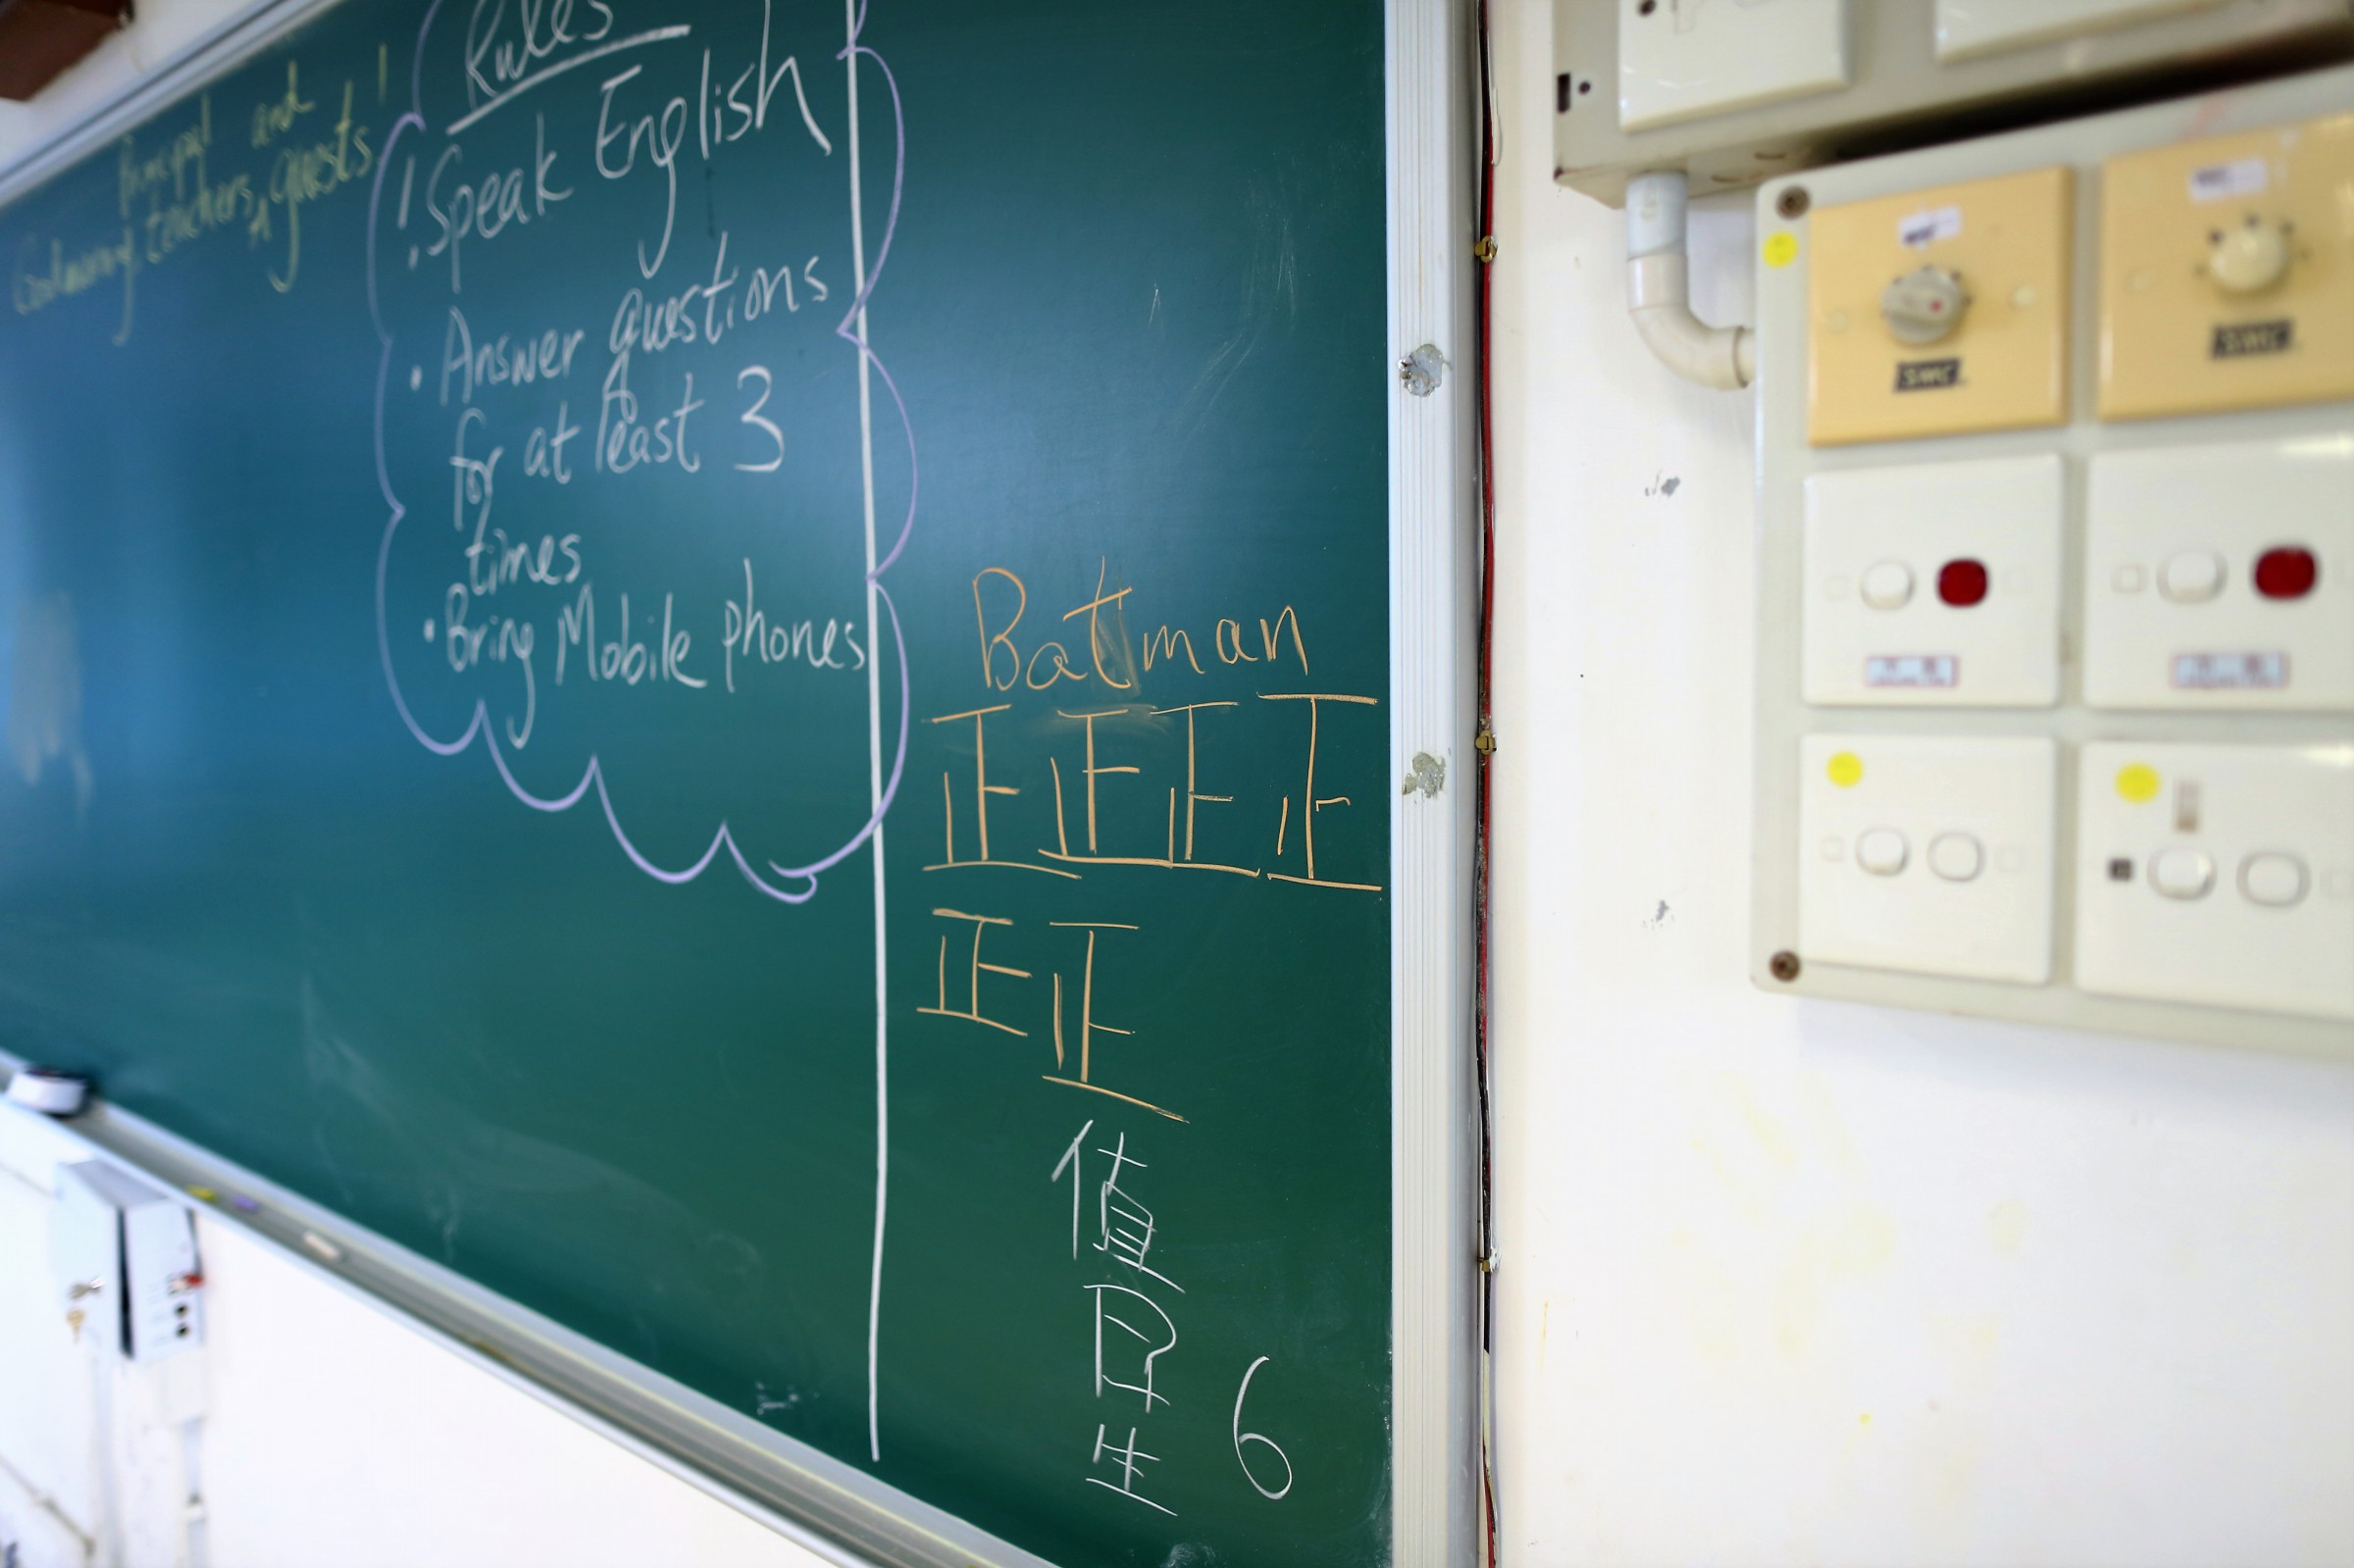 Principal and
Goodmorning, teachers, guests!
Rules
! Speak English
• Answer questions
for at least 3
times
• Bring Mobile phones
Batman
正正正正
正正
值日生 6
SMC
SMC